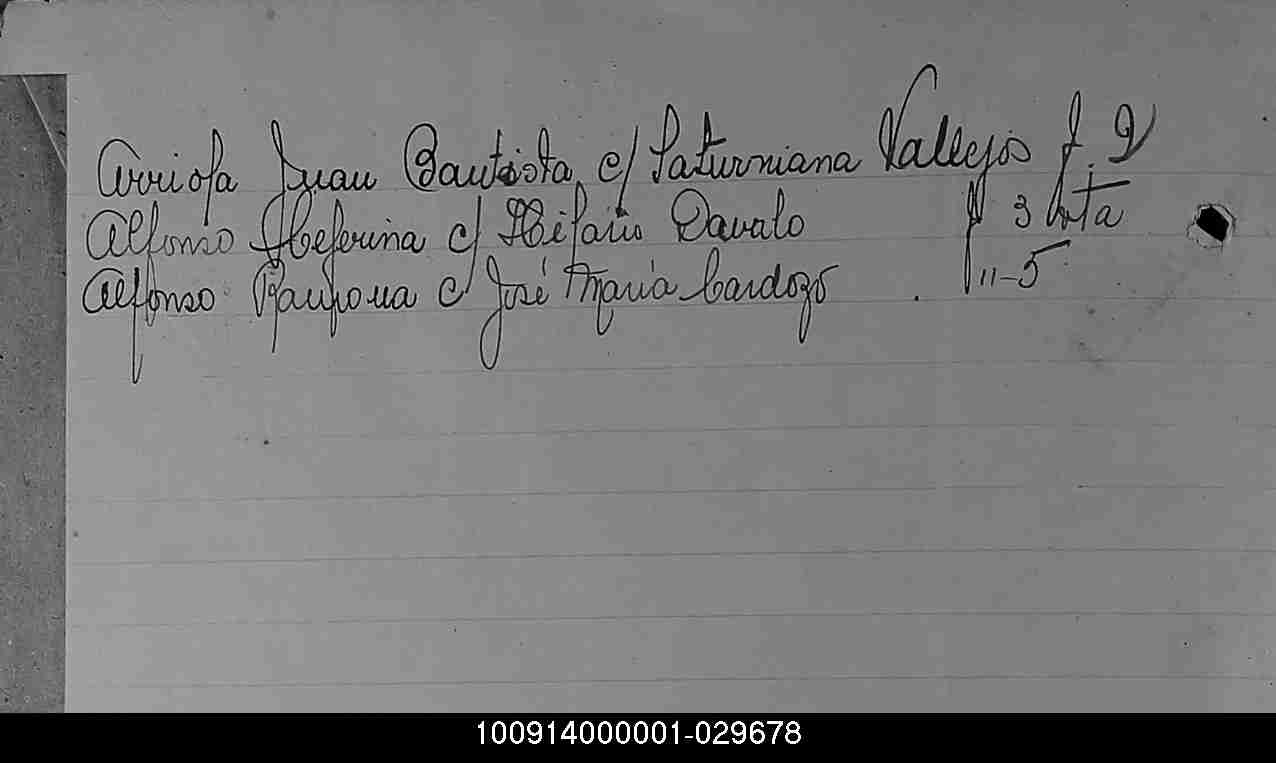 Arriola Juan Bautista c/ Saturniana Vallejos f. 2
Alfonso Ceferina c/ Hilario Davalo f 3 vta
Alfonso Ramona c/ José Maria Cardozo . f 11-5
100914000001-029678